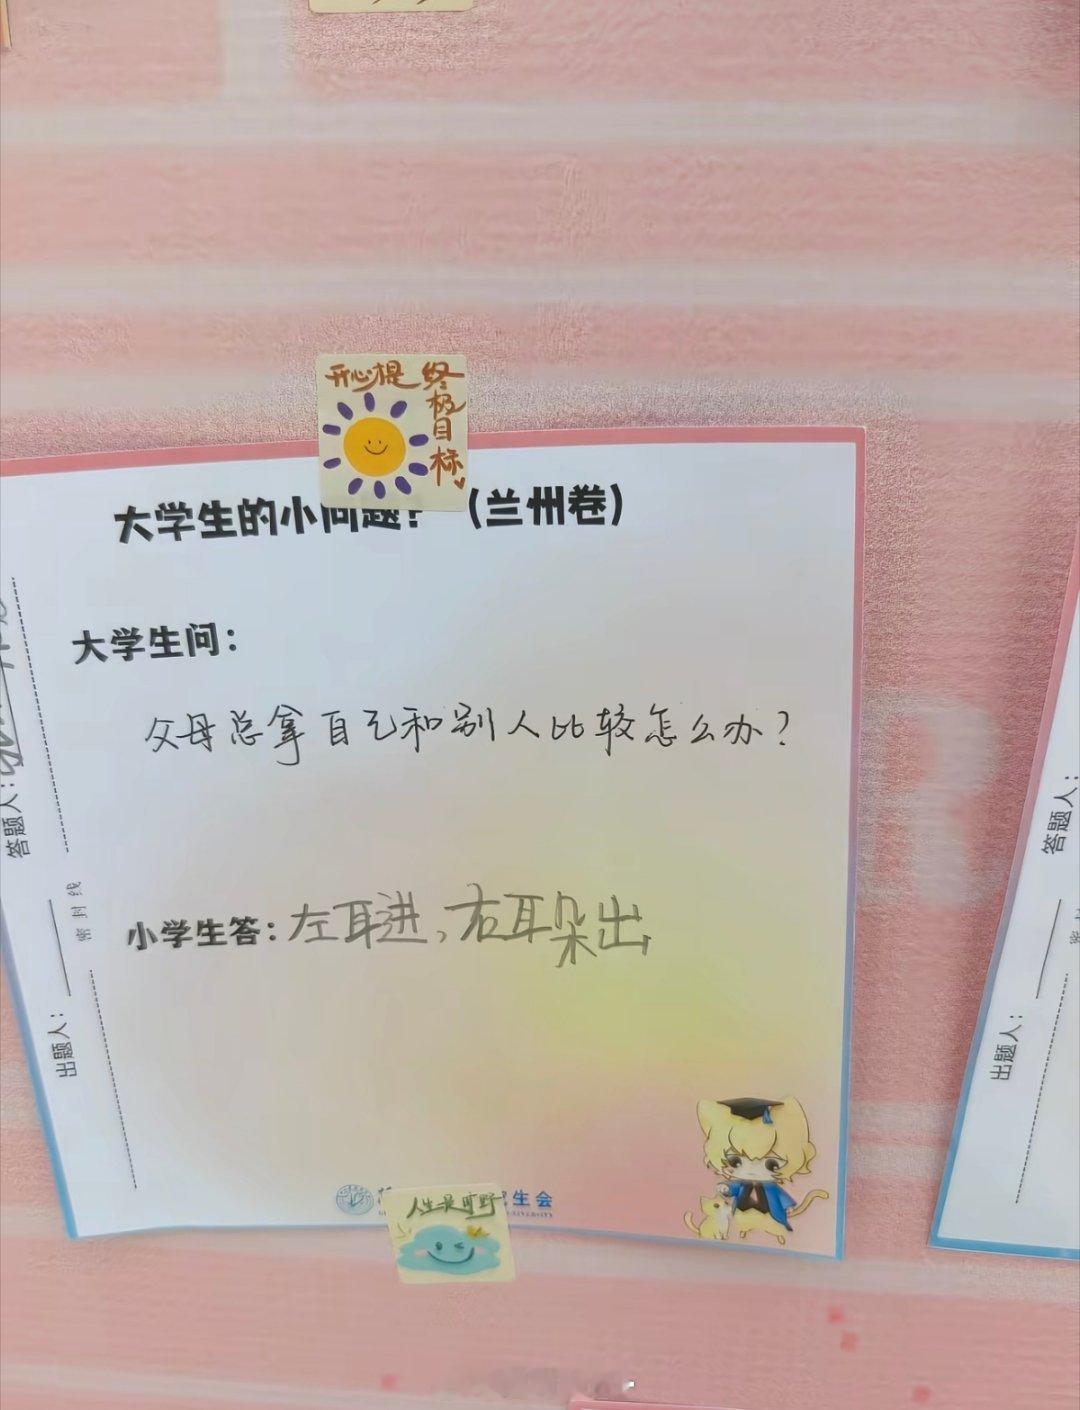 开心是终极目标
大学生的小问题？（兰州卷）
大学生问：
父母总拿自己和别人比较怎么办？
小学生答：左耳进，右耳朵出
答题人：
密封线
出题人：
人生是旷野
生会
答题人：
密
出题人：